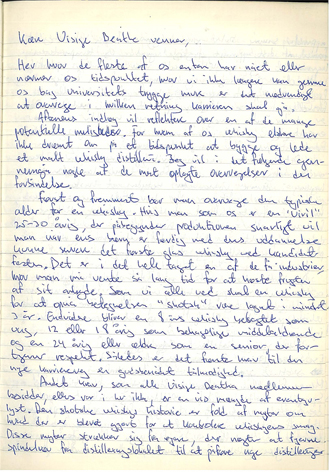 Kære Visige Dentke venner,
Her hvor de fleste af os enten har nået eller
nærmer os tidspunktet, hvor vi ikke længere kan gemme
os bag universitets trygge mure er det nødvendigt
at overveje i hvilken retning karrieren skal gå.
Aftenens indlæg vil reflektere over en af de mange
potentielle muligheder. for hvem af os whisky elskere har
ikke drømt om på et tidspunkt at bygge og lede
et malt whisky distilleri. Jeg vil i det følgende gen-
nemgå nogle af de mest oplagte overvejelser i den
forbindelse.
Først og fremmest bør man overveje den typiske
alder for en whisky. Hvis man som os er en "viril"
25-30 årig, der påbegynder produktionen samtidig
man er færdig med uddannelse
kunne det første glas whisky med
festen. Det er i det hele taget en af de få industrier
hvor man må vente så lang tid for at høste frugten
af sit arbejde. Som vi alle ved skal en whisky
for at opnå betegnelsen "skotsk" ikke lagret i mindst
3 år. Endvidere bliver en 8 års whisky betragtet som
ung, 12 eller 18 år som behagelige middelaldrende
og en 24 årig eller ældre som en senior, der for-
tjener respekt. Således er det første krav til den
nye karrierevej en tålmodighed.
Andet krav, som alle Visige Dentke medlemmer
besidder, ellers var i her ikke, er en vis mængde af eventyr-
lyst. Den skotske whiskys historie er fuld af myter om
hvad der er blevet gjort for at kontrollere whiskyens smag.
Disse myter strækker sig fra ejere, der nægter at fjerne
spindelvæv fra distilleringslokalet til at påføre nye distilleringer